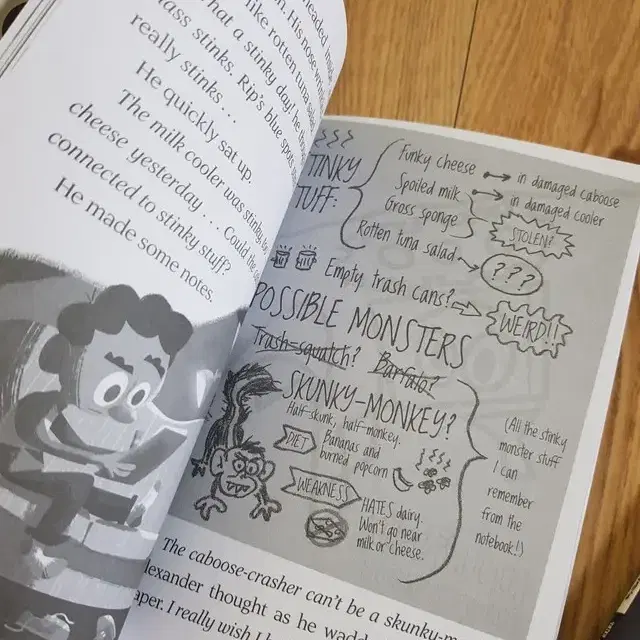 headed
. His nose
like rotten tuna
What a stinky day! he
lass stinks. Rip's blue spots
really stinks . . .
He quickly sat up.
The milk cooler was stinky,
cheese yesterday . . . Could
connected to stinky stuff?
He made some notes.
TINKY
TUFF:
Funky cheese ↔ in damaged caboose
Spoiled milk ↔ in damaged cooler
Gross sponge
STOLEN?
Rotten tuna salad → ???
Empty trash cans? ⇨ WEIRD!!
POSSIBLE MONSTERS
Trash-squatch? Barfato?
SKUNKY-MONKEY?
Half-skunk, half-monkey.
DIET
Bananas and
burned popcorn
WEAKNESS
HATES dairy.
Won't go near
milk or cheese.
(All the stinky
monster stuff
I can
remember
from the
notebook!)
The caboose-crasher can't be a skunky-m
lexander thought as he wadd
aper. I really wish I